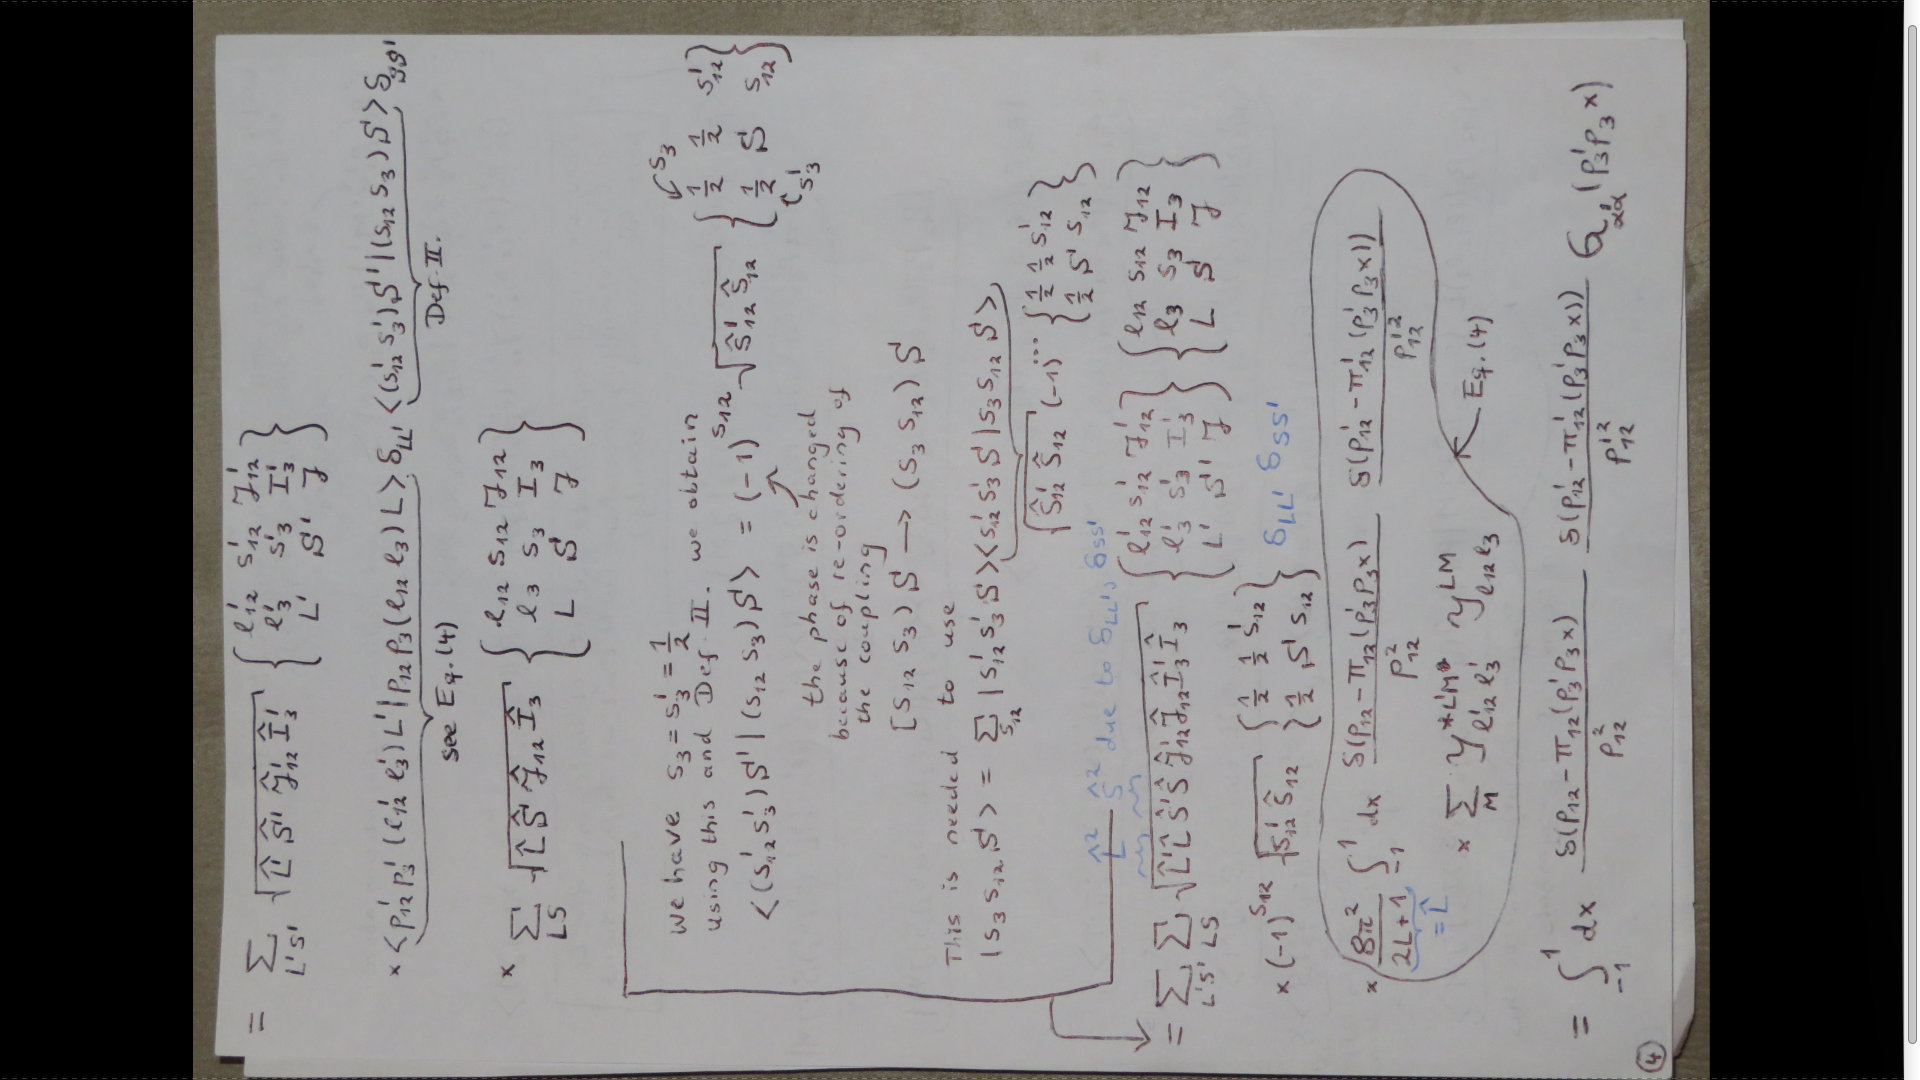 = Σ_{L'S'} √(L̂' Ŝ' Ĵ'₁₂ Î'₃) { l'₁₂ s'₁₂ J'₁₂ / l'₃ s'₃ I'₃ / L' S' J }
× <p'₁₂ p'₃ (l'₁₂ l'₃) L' | p₁₂ p₃ (l₁₂ l₃) L> δ_{LL'} <(s'₁₂ s'₃) S' | (s₁₂ s₃) S> δ_{SS'}
see Eq. (4)
Def. II.
× Σ_{LS} √(L̂ Ŝ Ĵ₁₂ Î₃) { l₁₂ s₁₂ J₁₂ / l₃ s₃ I₃ / L S J }
we have s₃ = s'₃ = 1/2
using this and Def. II. we obtain
<(s'₁₂ s'₃) S' | (s₁₂ s₃) S> = (-1)^{s₁₂} √(ŝ'₁₂ ŝ₁₂) { 1/2 1/2 s'₁₂ / 1/2 S s₁₂ }
s₃
s'₃
the phase is changed
because of re-ordering of
the coupling
[s₁₂ s₃) S → (s₃ s₁₂) S
This is needed to use
|s₃ s₁₂ S> = Σ_{s₁₂} |s'₁₂ s'₃ S> <s'₁₂ s'₃ S | s₃ s₁₂ S>
√(ŝ'₁₂ ŝ₁₂) (-1)^{...} { 1/2 1/2 s'₁₂ / 1/2 S' s₁₂ }
L̂² Ŝ² due to δ_{LL'}, δ_{SS'}
= Σ_{L'S'} Σ_{LS} √(L̂' L̂ Ŝ' Ŝ Ĵ'₁₂ Ĵ₁₂ Î'₃ Î₃) { l'₁₂ s'₁₂ J'₁₂ / l'₃ s'₃ I'₃ / L' S' J } { l₁₂ s₁₂ J₁₂ / l₃ s₃ I₃ / L S J }
× (-1)^{s₁₂} √(ŝ'₁₂ ŝ₁₂) { 1/2 1/2 s'₁₂ / 1/2 S' s₁₂ } δ_{LL'} δ_{SS'}
× 8π²/(2L+1) ∫_{-1}^{1} dx δ(p₁₂ - π₁₂(p'₃ p₃ x))/p₁₂² δ(p'₁₂ - π'₁₂(p'₃ p₃ x))/p'₁₂²
= L̂
× Σ_M Y*^{L'M'}_{l'₁₂ l'₃} Y^{LM}_{l₁₂ l₃}
Eq. (4)
= ∫_{-1}^{1} dx δ(p₁₂ - π₁₂(p'₃ p₃ x))/p₁₂² δ(p'₁₂ - π'₁₂(p'₃ p₃ x))/p'₁₂² G_{α'α}(p'₃ p₃ x)
4